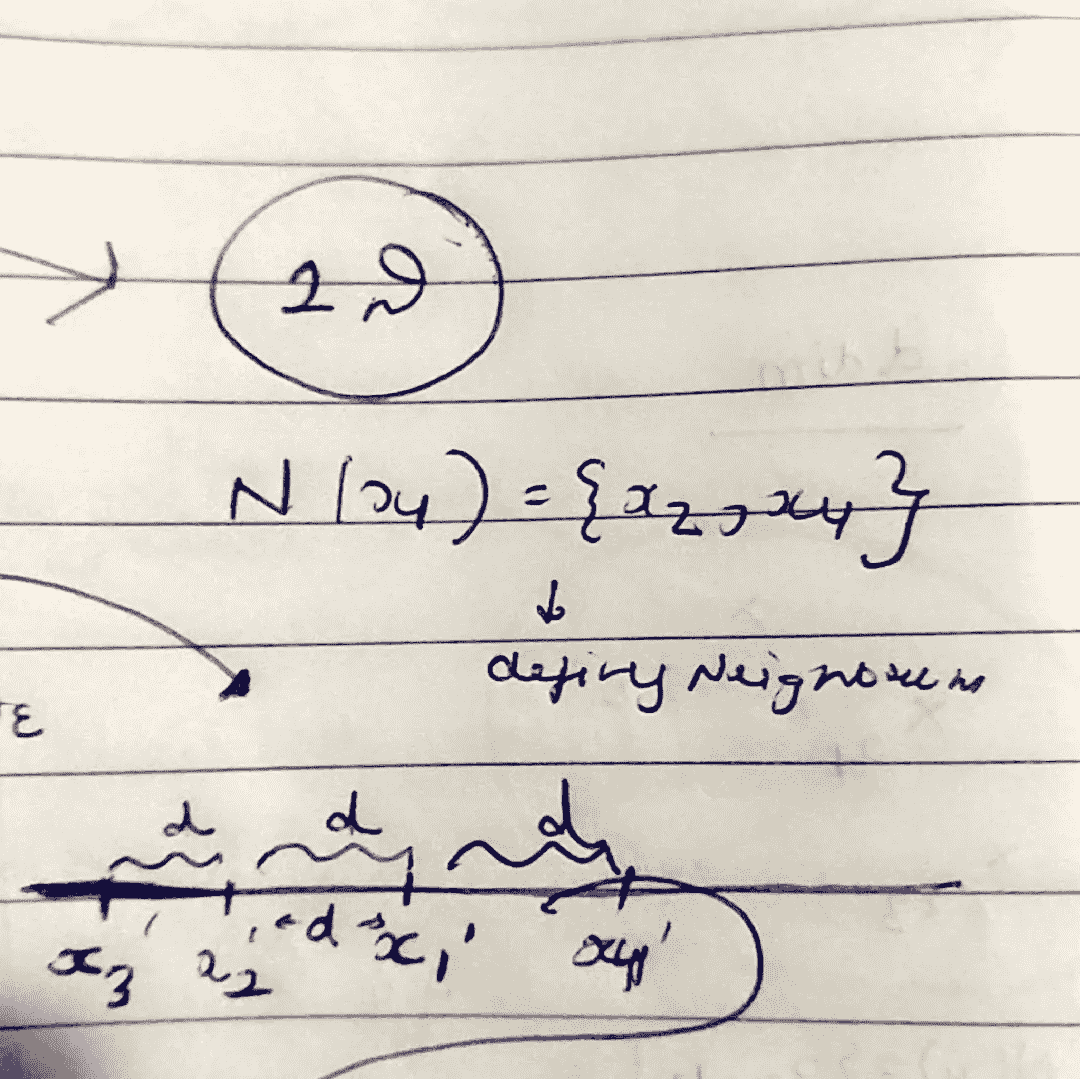 N(x4) = {x2, x4}
↓
defing Neighbours
ε
d d d
x3' x2' ←d→ x1' x4'